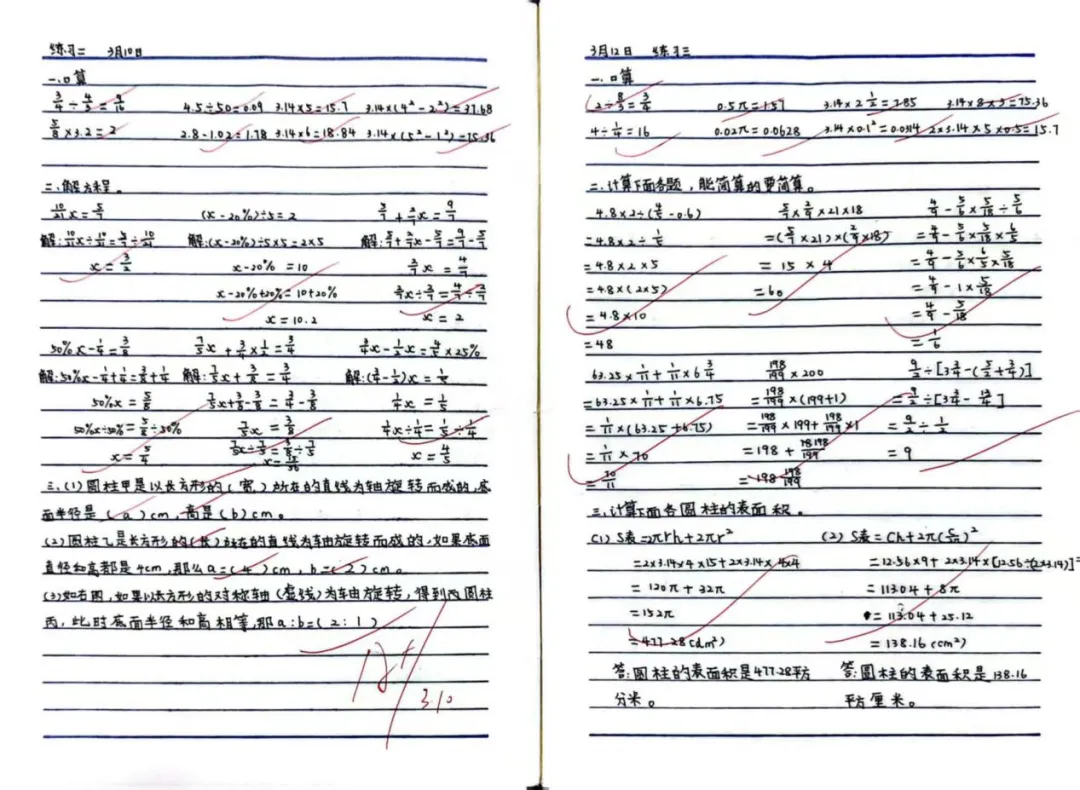 练习二 3月10日
一、口算
3/4÷4/3=9/16 4.5÷50=0.09 3.14×5=15.7 3.14×(4²-2²)=37.68
5/8×3.2=2 2.8-1.02=1.78 3.14×6=18.84 3.14×(5²-1²)=75.36
二、解方程。
10/21x=5/7 (x-20%)÷5=2 5/7+2/7x=9/7
(x-20%)÷5×5=2×5
x=3/2 x-20%=10
x-20%+20%=10+20%
x=10.2 x=2
50%x-1/4=3/8 7/5x+3/4×1/2=3/4 3/4x-1/2x=4/5×25%
解:50%x-1/4+1/4=3/8+1/4 解:7/5x+3/8=3/4 解:(3/4-1/2)x=1/5
50%x=5/8 7/5x+3/8-3/8=3/4-3/8 1/4x=1/5
50%x÷50%=5/8÷50% 7/5x=3/8 1/4x÷1/4=1/5÷1/4
x=5/4 7/5x÷7/5=3/8÷7/5 x=4/5
x=15/56
三、(1)圆柱甲是以长方形的(宽)所在的直线为轴旋转而成的,底
面半径是(a)cm,高是(b)cm。
(2)圆柱乙是长方形的(长)所在的直线为轴旋转而成的,如果底面
直径和高都是4cm,那么a=(4)cm,b=(2)cm。
(3)如右图,如果以长方形的对称轴(虚线)为轴旋转,得到丙圆柱
丙,此时底面半径和高相等,那a:b=(2:1)
3.10
3月12日 练习三
一、口算
2÷8/3=3/4 0.5π=1.57 3.14×2 1/2=7.85 3.14×8×3=75.36
4÷1/4=16 0.02π=0.0628 3.14×0.1²=0.0314 2×3.14×5×0.5=15.7
二、计算下面各题,能简算的要简算。
4.8×2÷(4/5-0.6) 5/7×2/9×21×18 4/9-5/6×5/18÷5/6
=4.8×2÷1/5 =(5/7×21)×(2/9×18) =4/9-5/6×5/18×6/5
=4.8×2×5 =15×4 =4/9-5/6×6/5×5/18
=4.8×(2×5) =60 =4/9-1×5/18
=4.8×10 =4/9-5/18
=48 =1/6
63.25×1/11+1/11×6 3/4 198/199×200 9/2÷[3 3/4-(5/2+3/4)]
=63.25×1/11+1/11×6.75 =198/199×(199+1) =9/2÷[3 3/4-13/4]
=1/11×(63.25+6.75) =198/199×199+198/199×1 =9/2÷1/2
=1/11×70 =9
=70/11 =198 198/199
三、计算下面各圆柱的表面积。
(1)S表=2πrh+2πr² (2)S表=Ch+2π(C/2π)²
=2×3.14×4×15+2×3.14×4×4 =12.56×9+2×3.14×[12.56÷(2×3.14)]²
=120π+32π =113.04+8π
=152π =113.04+25.12
=477.28(dm²) =138.16(cm²)
答:圆柱的表面积是477.28平 答:圆柱的表面积是138.16
分米。 平方厘米。